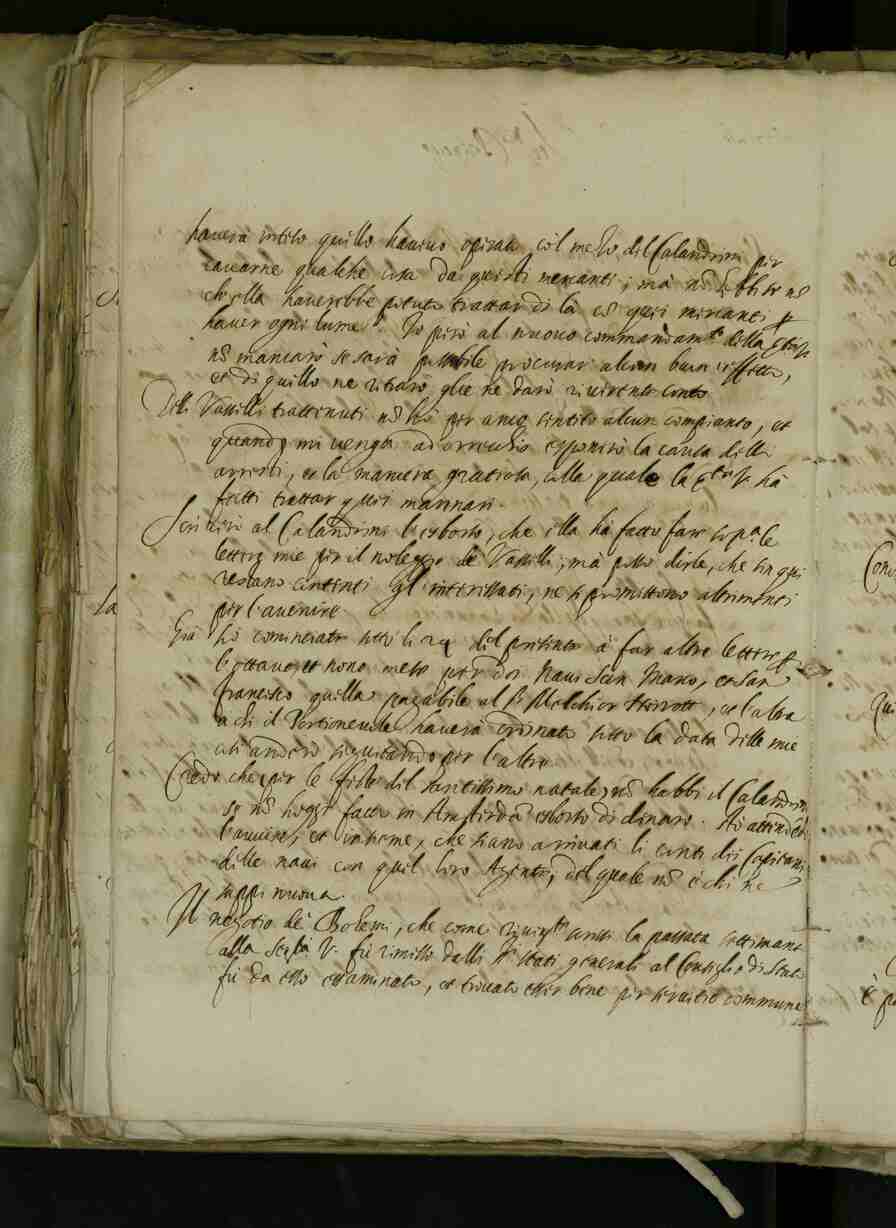 haverà inteso quello havevo operato co'l mezo del Calandrini per
cavarne qualche cosa da questi mercanti; mà nõ dubito nõ
ch'ella haverebbe potuto trattar di là cõ quei mercanti p
haver ogni lume. Io però al nuovo commandamto della Ser.tà V.
nõ mancarò se sarà possibile procurar alcun buon effetto,
et di quello ne ritrarò glie ne darò riverente conto.
Delli Vasselli trattenuti nõ hò per anco sentito alcun compianto, et
quando mi venga ad orrecchio esponerò la causa delli
arresti, et la maniera gratiosa, colla quale la Ser.tà V. hà
fatti trattar quei marinari.
Scriverò al Calandrini l'esborso, che ella hà fatto far sopa le
lettere mie per il noleggio de Vasselli; mà posso dirle, che sin qui
restano contenti gl'interessati, ne si promettono altrimenti
per l'avenire.
Già hò cominciato sotto li del presente à far altre lettere p
l'ottavo, et nono mese per doi Navi San Marco, et San
Francesco quella pagabile al Sr Melchior, et l'altra
a chi il Portionevole haverà ordinato sotto la data delle mie
così anderò seguitando per l'altre.
Credo che per le feste del santissimo natale nõ habbi il Calandrini
se nõ hoggi fatto in Amsterdã esborso di dinaro. Ne attendo
l'avviso, et insieme, che siano arrivati li conti dei Capitani
delle navi con quel loro Agente, del quale nõ è chi ne
sappi nuova.
Il negotio de Bohemi, che come riverentte scrissi la passata settimana
alla Sertà V. fù rimesso dalli Sri Stati generali al Consiglio di Stato
fù da esso essaminato, et trovato esser bene per servitio commune